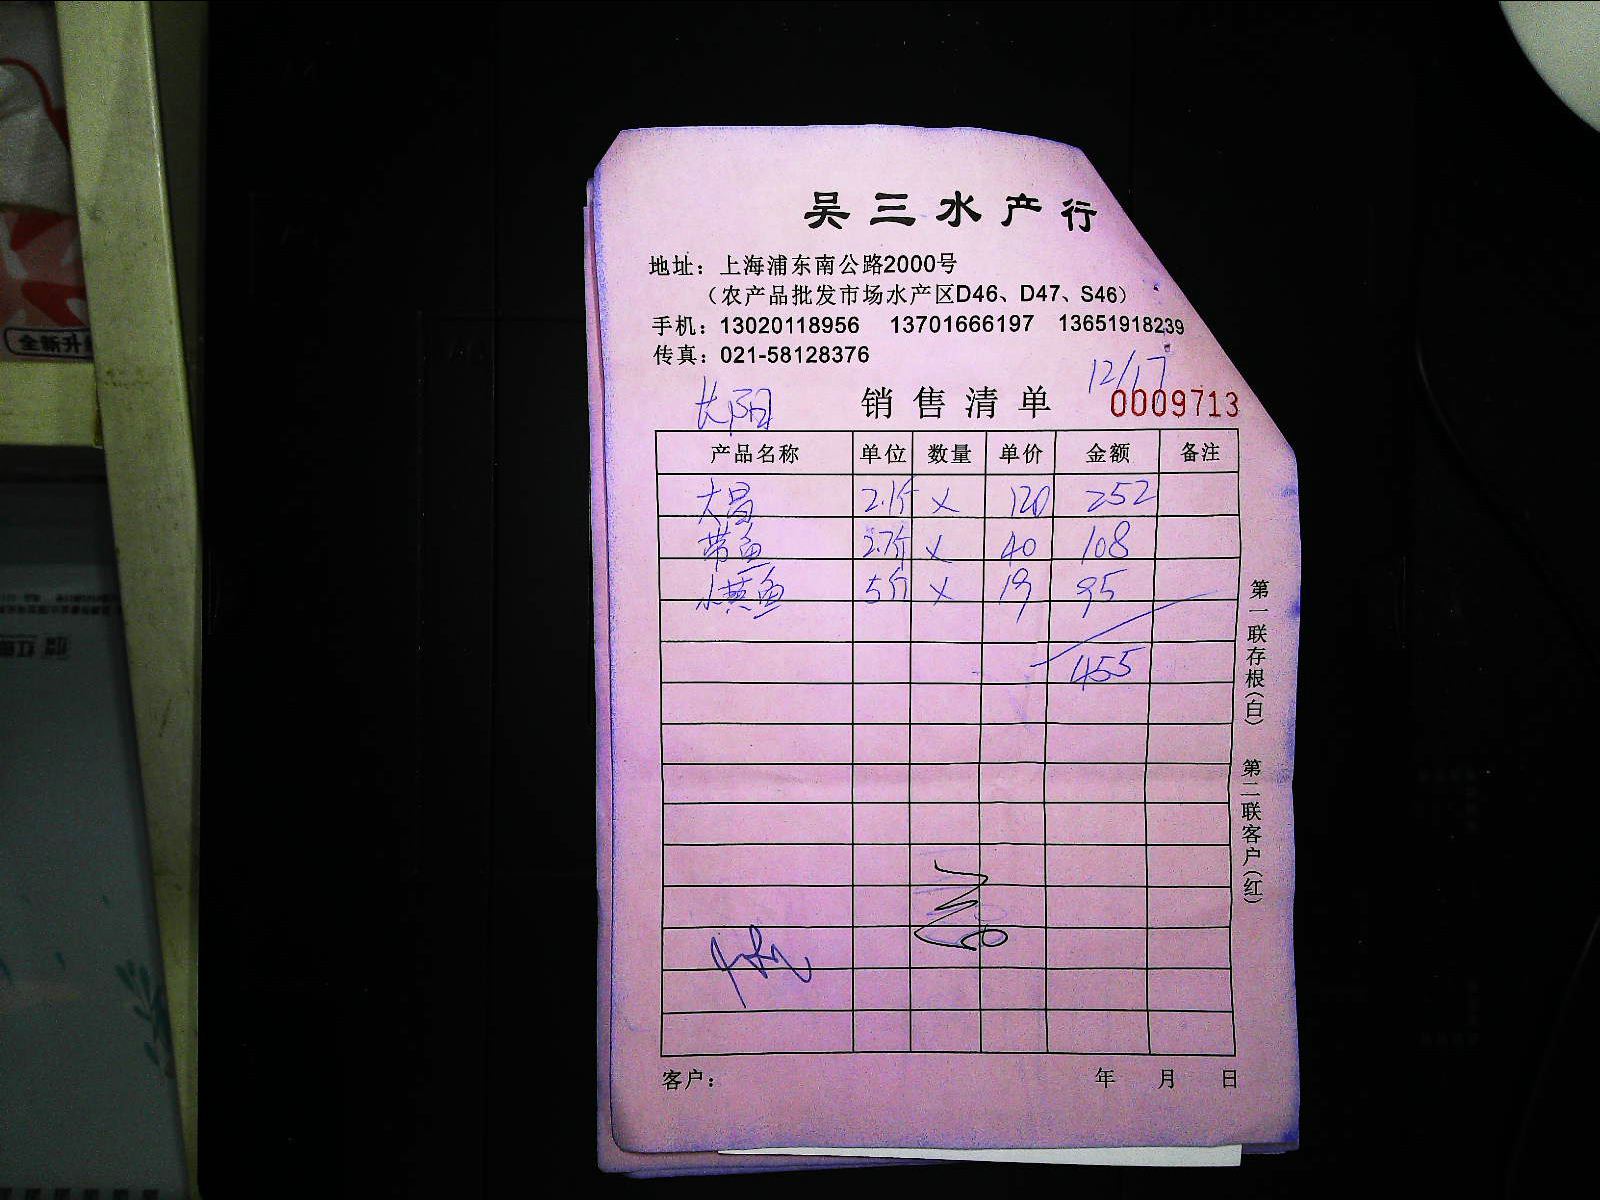 吴三水产行
地址：上海浦东南公路2000号
（农产品批发市场水产区D46、D47、S46）
手机：13020118956 13701666197 13651918239
传真：021-58128376
12/17
长阳 销售清单 0009713
产品名称 单位 数量 单价 金额 备注
大昌 2.1斤 X 120 252
带鱼 2.7斤 X 40 108
小黄鱼 5斤 X 19 95
455
第一联存根（白）
第二联客户（红）
客户： 年 月 日
全新升